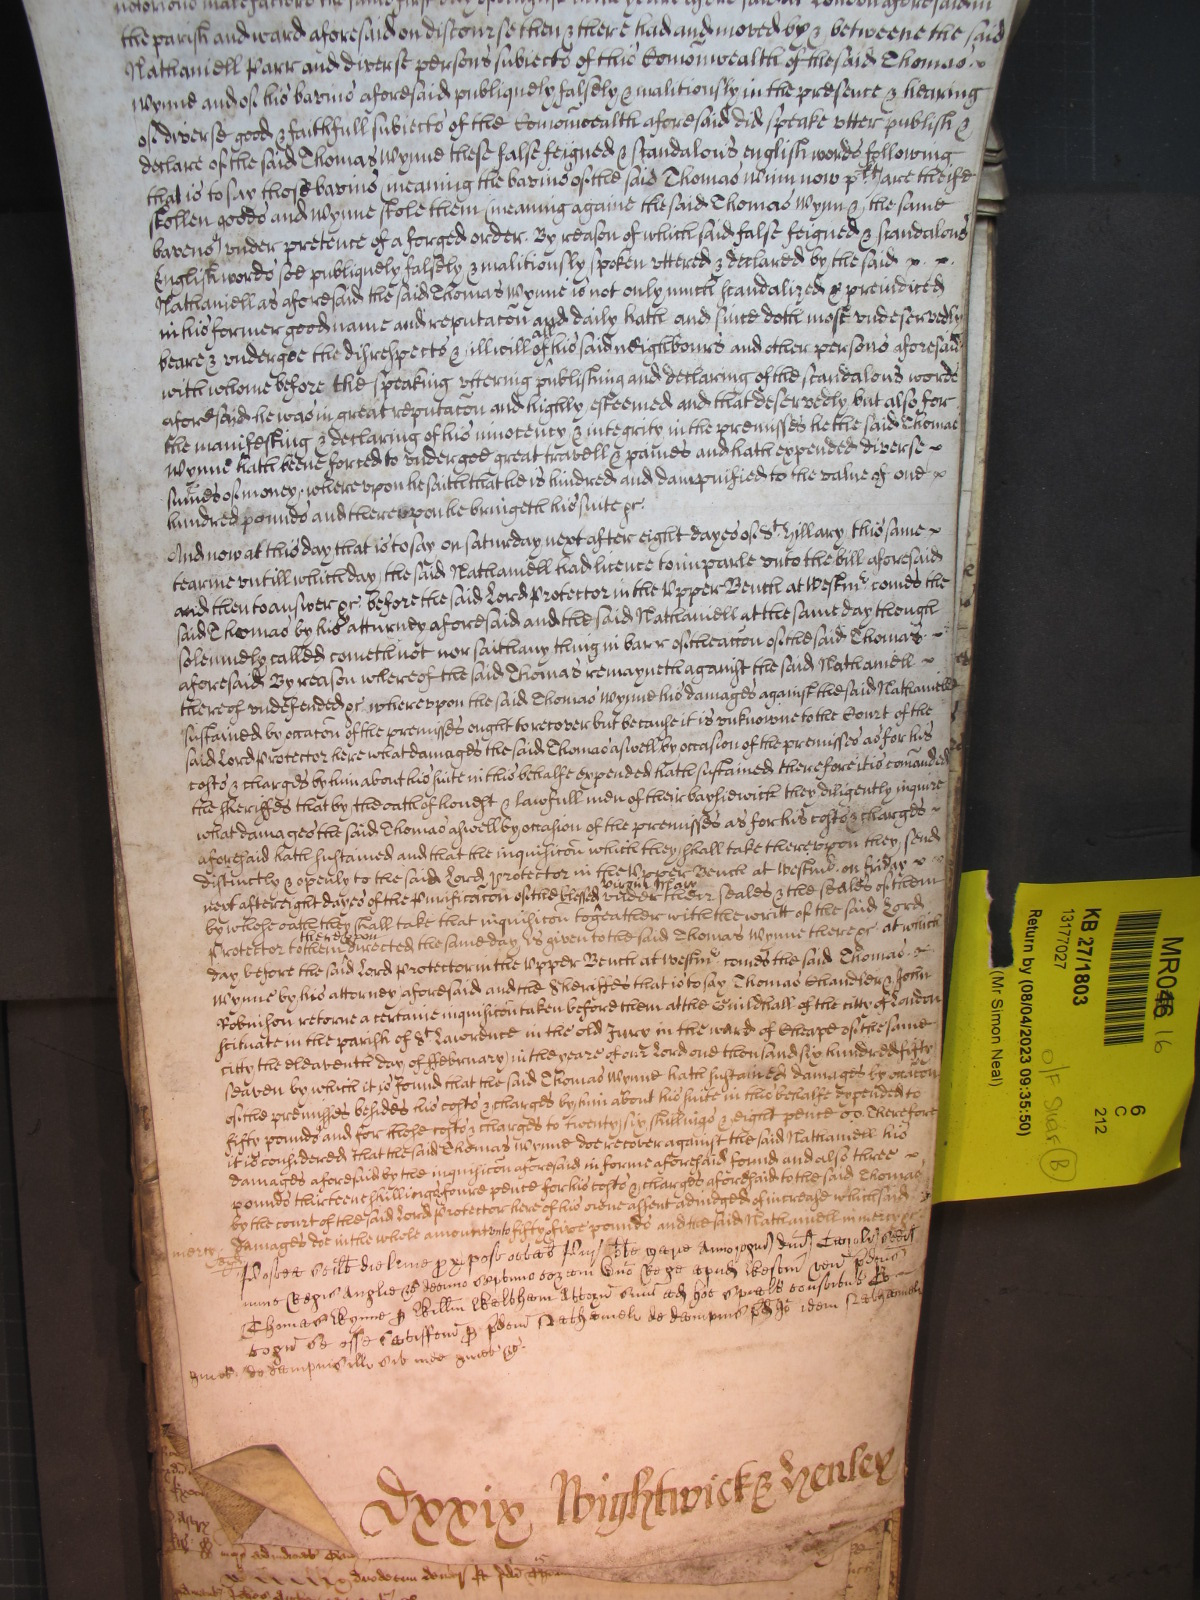 the parish and ward aforesaid on discourse then & there had and moved by & betweene the said
Nathaniell Parr and diverse persons subiects of this Comonwealth of the said Thomas
Wynne and of his barens aforesaid publiquely falsely & malitiously in the presence & hearing
of diverse good & faithfull subiects of the Comonwealth aforesaid did speake utter publish &
declare of the said Thomas Wynne these false feigned & scandalous english words following
that is to say those barens (meaning the barens of the said Thomas Winn now plt) are theise
stollen goods and Wynne stole them (meaning againe the said Thomas Wynn) the same
barens under pretence of a forged order. By reason of which said false feigned & scandalous
English words soe publiquely falsely & malitiously spoken uttered & declared by the said
Nathaniell as aforesaid the said Thomas Wynne is not only much scandalized & preiudiced
in his former good name and reputacon and daily hath and since doth most undeservedly
beare & undergoe the disrespects & illwill of all his said neighbours and other persons aforesaid
with whome before the speaking uttering publishing and declaring of the scandalous words
aforesaid he was in great reputacon and highly esteemed and that deservedly but also for
the manifesting & declaring of his innocency & integrity in the premisses he the said Thomas
Wynne hath beene forced to undergoe great travell & paines and hath expended diverse
sumes of money, whereupon he saith that he is hindred and dampnified to the value of one
hundred pounds and thereupon he bringeth his suite &c.
And now at this day that is to say on saturday next after eight dayes of St. Hillary this same
tearme untill which day the said Nathaniell had licence to imparle unto the bill aforesaid
and then to answer &c. before the said Lord Protector in the Upper Bench at Westmr. comes the
said Thomas by his atturney aforesaid and the said Nathaniell at the same day though
solemnely called cometh not nor saith any thing in barr of the accon of the said Thomas
aforesaid By reason whereof the said Thomas remayneth against the said Nathaniell
thereof undefended &c. whereupon the said Thomas Wynne his damages against the said Nathaniell
sustained by occacon of the premisses ought to recover but because it is unknowne to the Court of the
said Lord Protector here what damages the said Thomas aswell by occasion of the premisses as for his
costs & charges by him about his suite in this behalfe expended hath sustained therefore it is comanded
the sheriffes that by the oath of honest & lawfull men of their bayliewick they diligently inquire
what damages the said Thomas aswell by occasion of the premisses as for his costs & charges
aforesaid hath sustained and that the inquisicon which they shall take thereupon they send
distinctly & openly to the said Lord Protector in the Upper Bench at Westmr. on friday
next after eight dayes of the Purificacon of the blessed virgin Mary under their seales & the seales of them
by whose oath they shall take that inquisicon togeather with the writt of the said Lord
Protector to them thereupon directed the same day is given to the said Thomas Wynne there &c. at which
day before the said Lord Protector in the Upper Bench at Westmr. comes the said Thomas
Wynne by his attorney aforesaid and the Sheriffes that is to say Thomas Chandler & John
Robinson retorne a certaine inquisicon taken before them at the Guildhall of the city of London
scituate in the parish of St. Lawrence in the old Jury in the ward of Cheape of the same
city the eleaventh day of ffebruary in the yeare of our Lord one thousand six hundred fifty
seaven by which it is found that the said Thomas Wynne hath sustained damages by occacon
of the premisses besides his costs & charges by him about his suite in this behalfe expended to
fifty pounds and for those costs & charges to twenty six shillings & eight pence Therefore
it is considered that the said Thomas Wynne doe recover against the said Nathaniell his
damages aforesaid by the inquisicon aforesaid in forme aforesaid found and also three
pounds thirteene shillings foure pence for his costs & charges aforesaid to the said Thomas
by the court of the said Lord Protector here of his owne assent adiudged of increase which said
damages doe in the whole amount unto fifty five pounds and the said Nathaniell in mercy &c.
Postea
nunc Regis Anglie &c decimo septimo coram Dno Rege apud Westm ven pdcus
Thomas Wynne p Willm Waltham Attorn suu
cogn se esse satisfcm p pdcm Nathaniell de dampnis
de dampnis ill sit inde quiet &c.
Dxxix Wightwick & Henley
MR046 16
KB 27/1803
13177027
Return by (08/04/2023 09:35:50)
(Mr Simon Neal)
6
C
212
O/F Shelf B